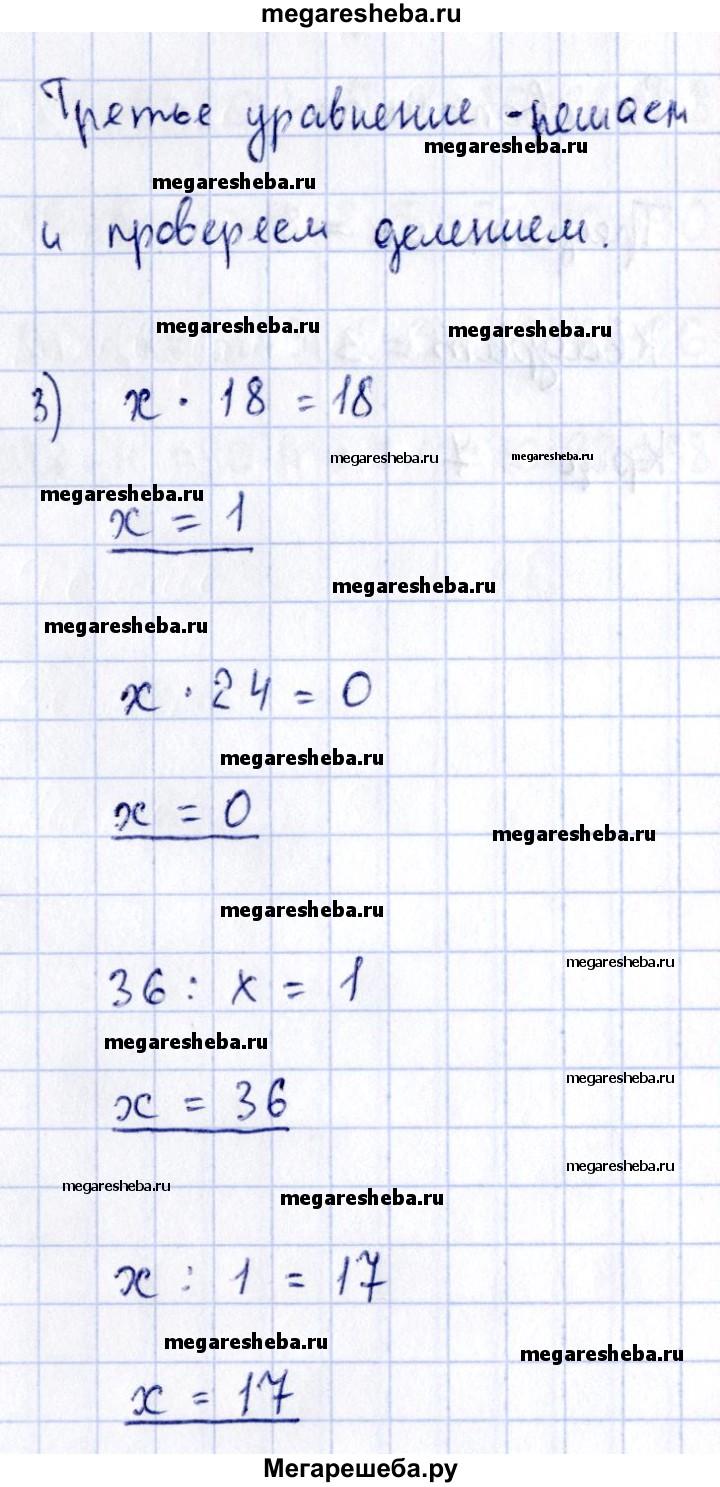 megaresheba.ru
Третье уравнение - решаем
megaresheba.ru
megaresheba.ru
и проверяем делением.
megaresheba.ru
megaresheba.ru
3) x · 18 = 18
megaresheba.ru
megaresheba.ru
megaresheba.ru
x = 1
megaresheba.ru
megaresheba.ru
x · 24 = 0
megaresheba.ru
x = 0
megaresheba.ru
megaresheba.ru
megaresheba.ru
36 : x = 1
megaresheba.ru
megaresheba.ru
x = 36
megaresheba.ru
megaresheba.ru
megaresheba.ru
x : 1 = 17
megaresheba.ru
megaresheba.ru
x = 17
Мегарешеба.ру